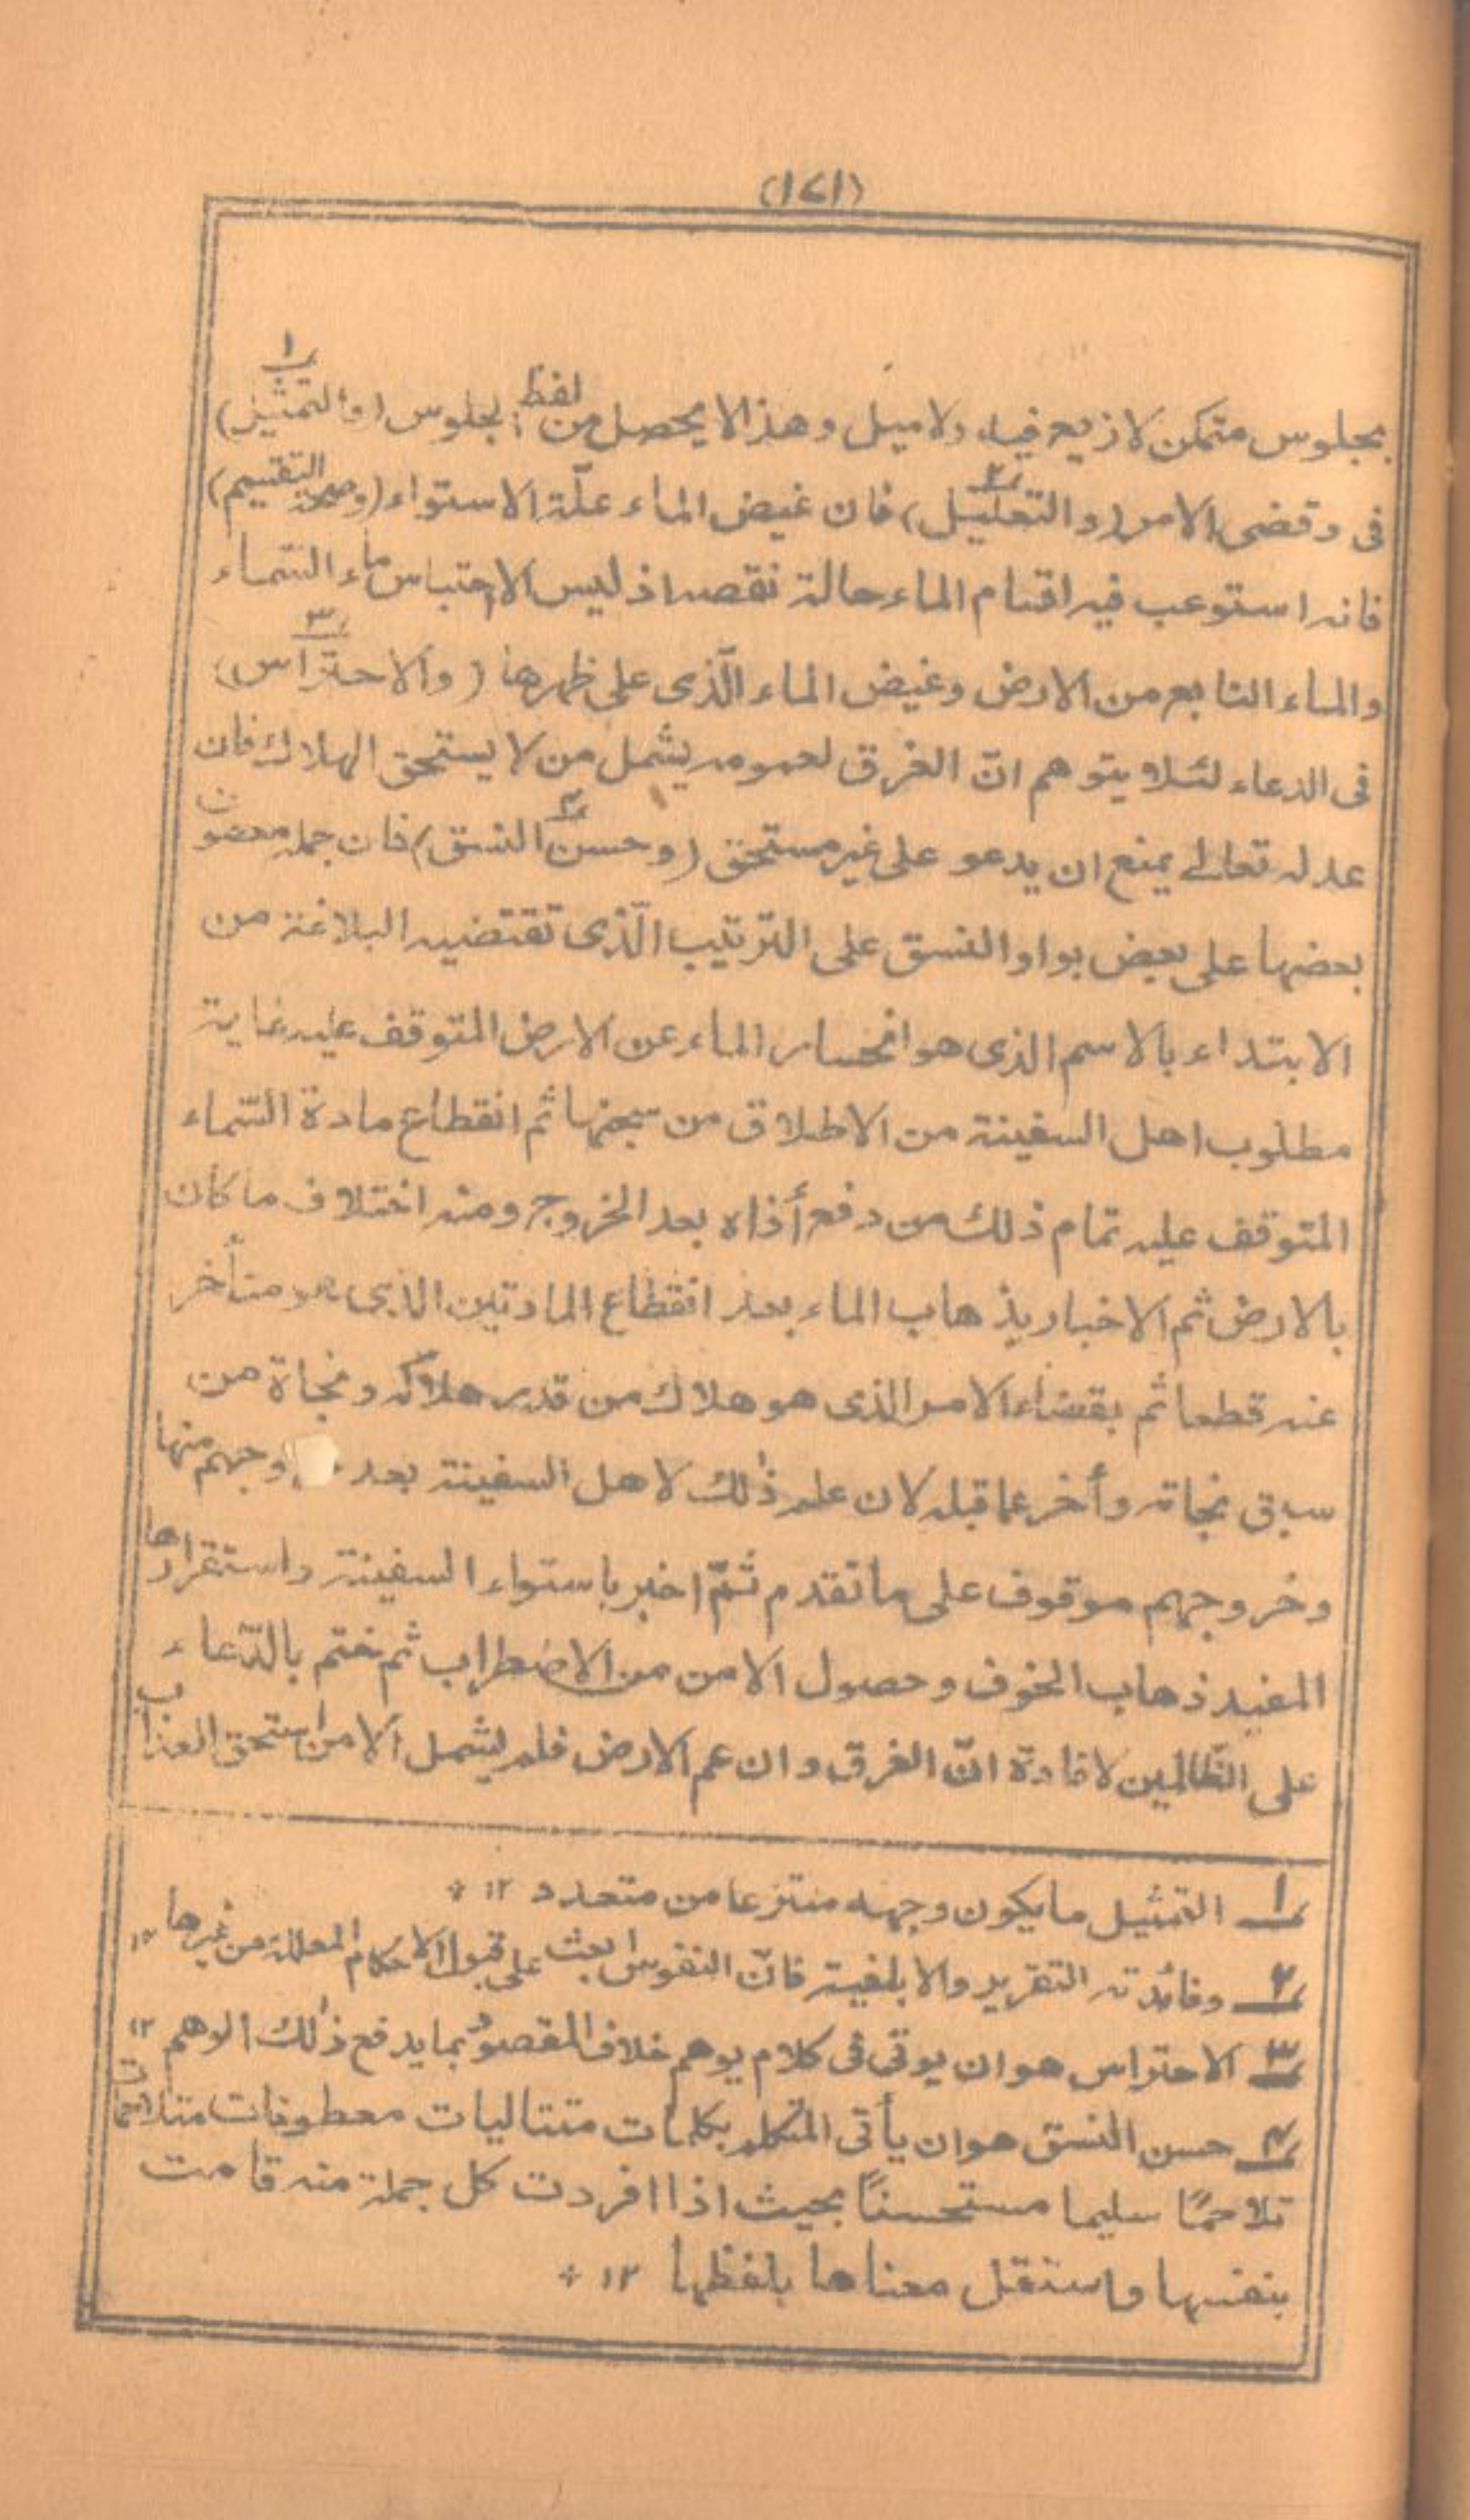 (١٤١)
بجلوس متمكن لا زيع فيه ولا ميل وهذا لا يحصل من لفظ الجلوس (والتمثيل)١
فى وقضى الامر (والتعليل)٢ فان غيض الماء علّة الاستواء (وصحة التقسيم)
فانه استوعب فيه اقسام الماء حالة نقصه اذ ليس الا احتباس ماء السماء
والماء النابع من الارض وغيض الماء الّذى على ظهرها (والاحتراس)٣
فى الدعاء لئلا يتوهم انّ الغرق لعمومه يشمل من لا يستحق الهلاك فان
عدله تعالى يمنع ان يدعو على غير مستحق (وحسن النسق)٤ فان جمله معضون
بعضها على بعض بواو النسق على الترتيب الّذى تقتضيه البلاغة من
الابتداء بالاسم الذى هو انحسار الماء عن الارض المتوقف عليه غاية
مطلوب اهل السفينة من الاطلاق من سجنها ثم انقطاع مادة السّماء
المتوقف عليه تمام ذلك من دفع أذاه بعد الخروج ومنه اختلاف ما كان
بالارض ثم الاخبار بذهاب الماء بعد انقطاع المادتين الذى هو متأخر
عنه قطعا ثم بقضاء الامر الذى هو هلاك من قدر هلاكه ونجاة من
سبق نجاته وأخر عما قبله لان علم ذلك لاهل السفينة بعد وجهم منها
وخروجهم موقوف على ما تقدم ثمّ اخبر باستواء السفينة واستقرارها
المفيد ذهاب الخوف وحصول الامن من الاضطراب ثم ختم بالدّعاء
على الظّالمين لافادة انّ الغرق وان عم الارض فلم يشمل الا من استحق العذاب
١ التمثيل ما يكون وجهه منتزعا من متعدد ١٢ +
٢ وفائدته التقرير والابلغية فانّ النفوس ابعث على قبول الاحكام المعللة من غيرها ١٢
٣ الاحتراس هو ان يوتى فى كلام يوهم خلاف المقصود بما يدفع ذلك الوهم ١٢
٤ حسن النسق هو ان يأتى المتكلم بكلمات متتاليات معطوفات متلاحمات
تلاحمًا سليما مستحسنًا بحيث اذا افردت كل جملة منه قامت
بنفسها واستقل معناها بلفظها ١٢ +